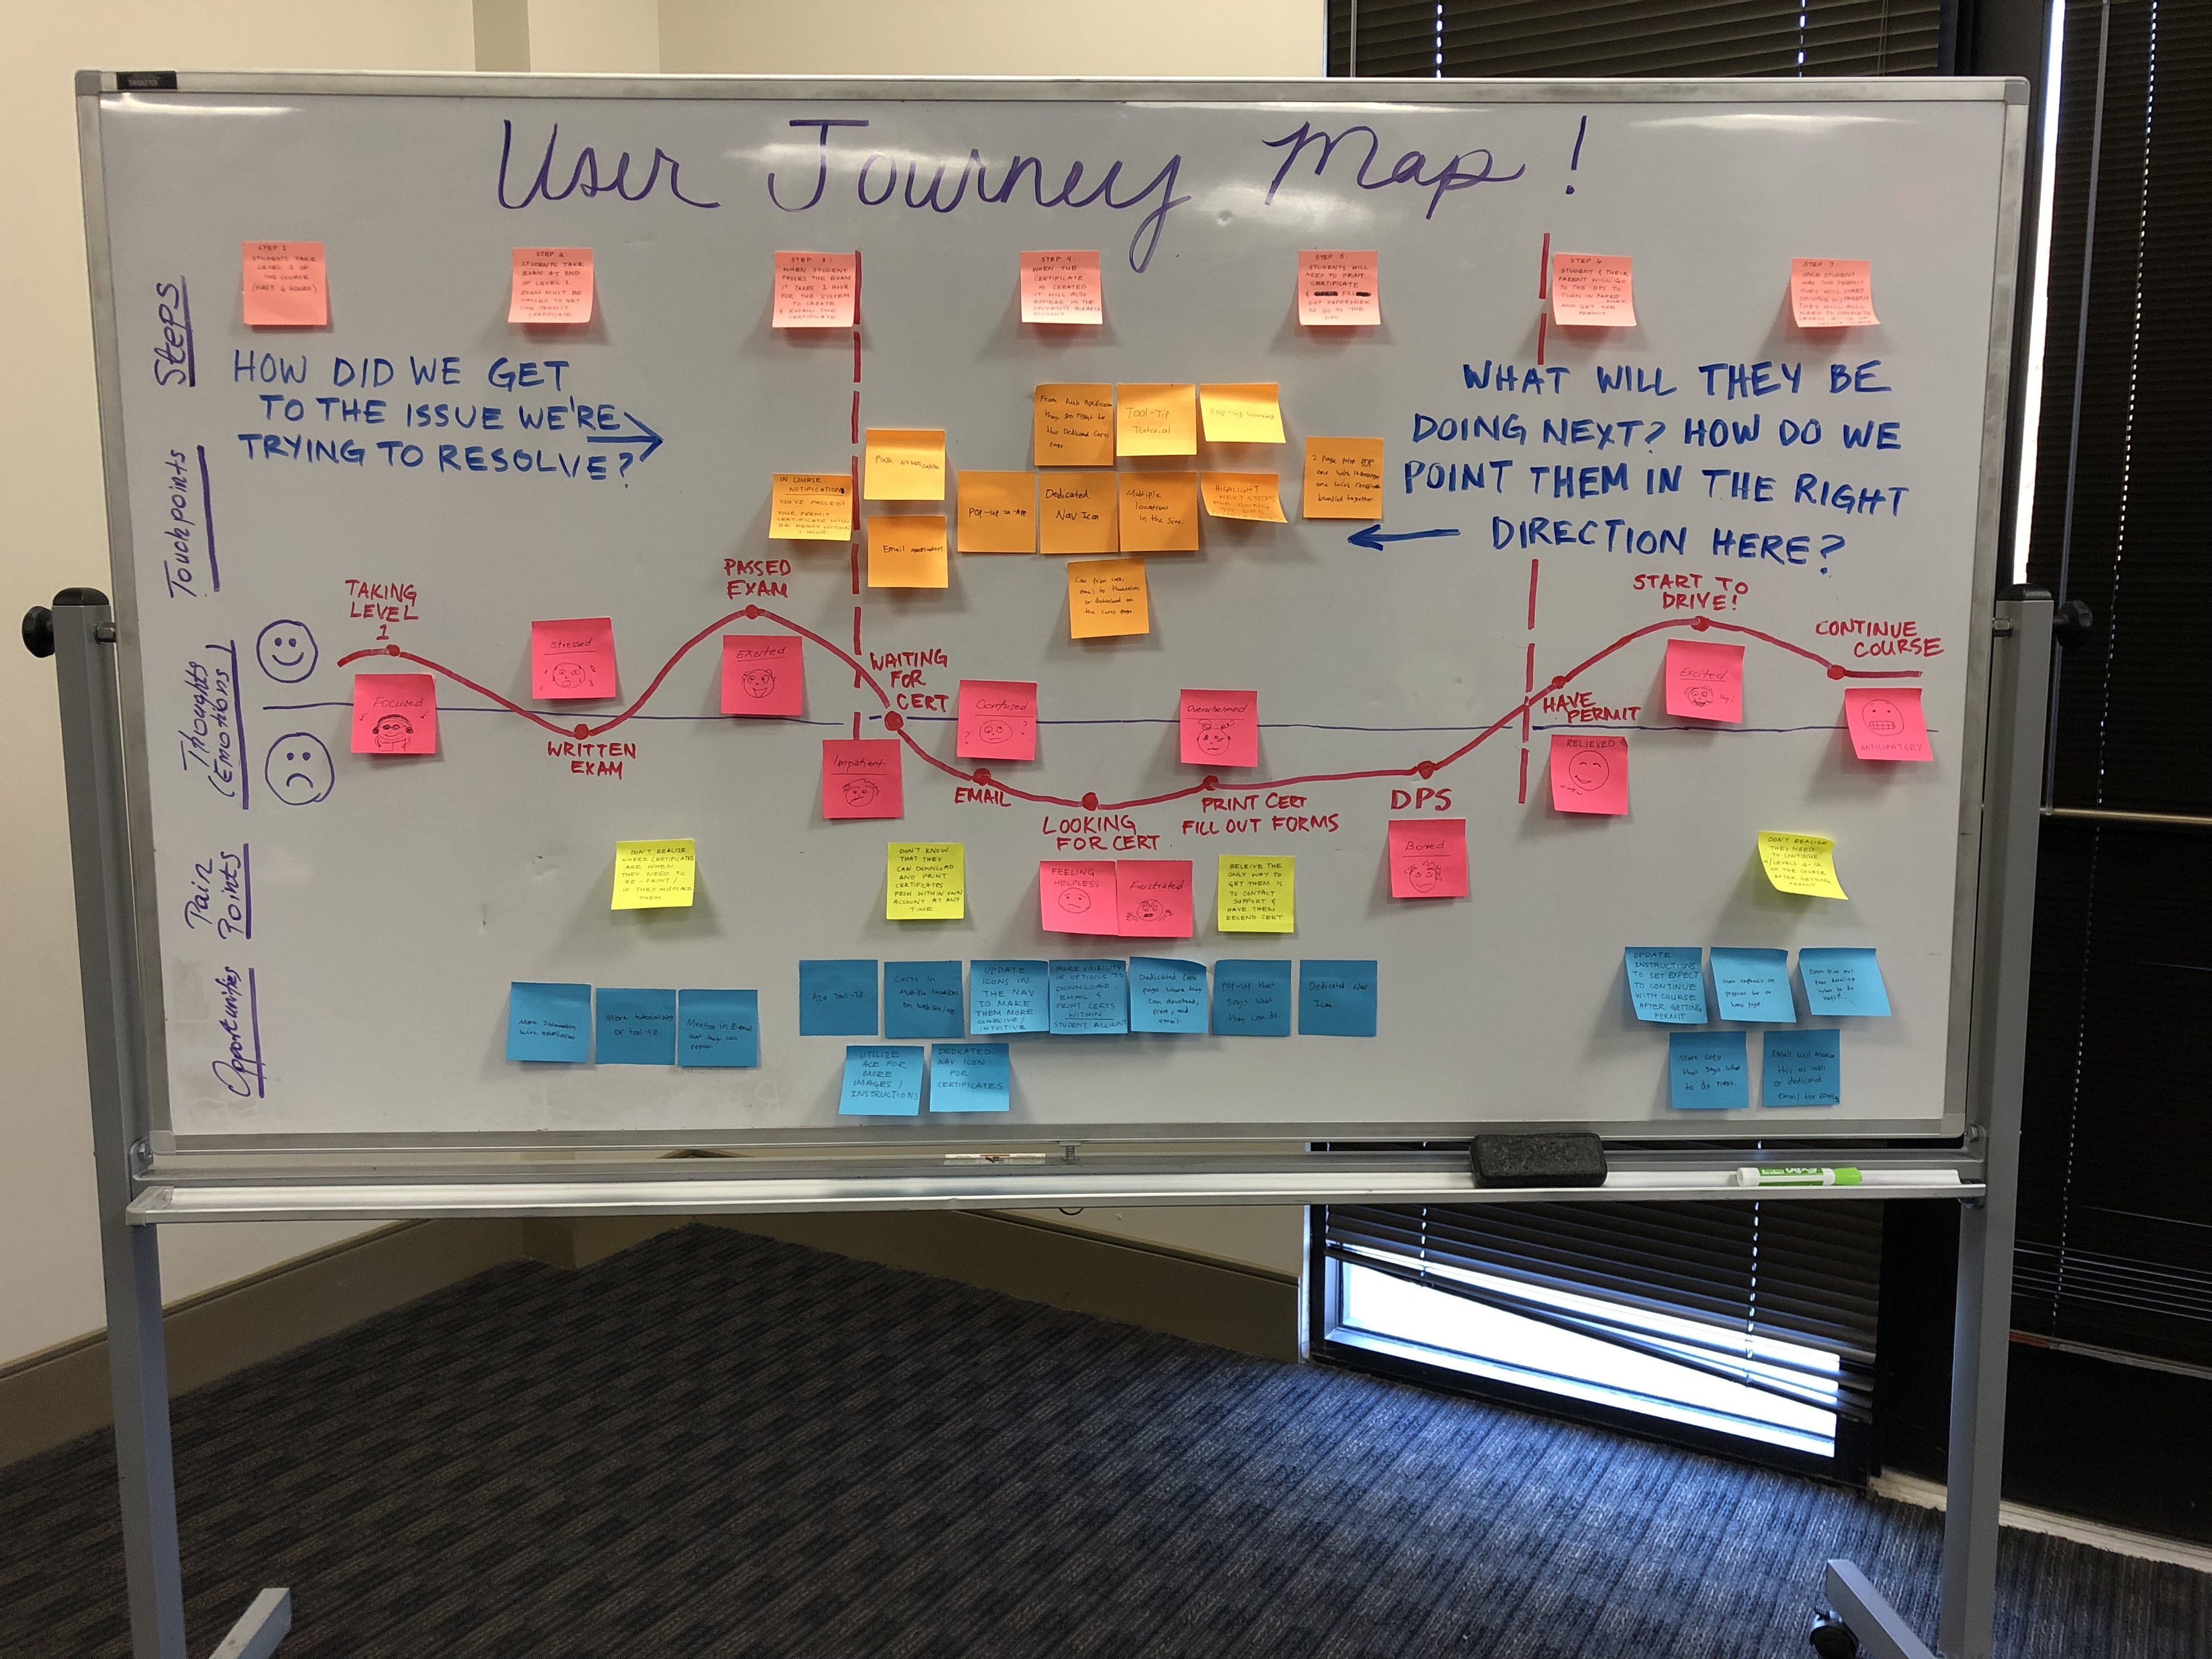 User Journey Map!
Steps
STEP 1
STUDENTS TAKE
LEVEL 1 OF
THE COURSE
(FIRST 6 HOURS)
STEP 2
STUDENTS TAKE
EXAM AT END
OF LEVEL 1
EXAM MUST BE
PASSED TO GET
THE PERMIT
CERTIFICATE
STEP 3:
WHEN STUDENT
PASSES THE EXAM
IT TAKES 1 HOUR
FOR THE SYSTEM
TO CREATE
& EMAIL THE
CERTIFICATE
STEP 4:
WHEN THE
CERTIFICATE
IS CREATED
IT WILL ALSO
APPEAR IN THE
STUDENTS
ACCOUNT
STEP 5:
STUDENTS WILL
NEED TO PRINT
CERTIFICATE
& FILL
OUT PAPERWORK
TO GO TO THE
DPS
STEP 6
STUDENT & THEIR
PARENT WILL GO
TO THE DPS TO
TURN IN PAPER
WORK
AND GET THE
PERMIT
STEP 7
ONCE STUDENT
HAS THE PERMIT
THEY WILL START
DRIVING W/PARENT
THEY WILL ALSO
NEED TO COMPLETE
HOW DID WE GET
TO THE ISSUE WE'RE
TRYING TO RESOLVE?
WHAT WILL THEY BE
DOING NEXT? HOW DO WE
POINT THEM IN THE RIGHT
DIRECTION HERE?
Touchpoints
IN COURSE
NOTIFICATION
YOU'VE PASSED!
YOUR PERMIT
CERTIFICATE WILL
BE READY WITHIN
1 HOUR
Push Notification
Email notification
Pop-up in-App
From Push Notification
they go right to
the Dedicated Certs
page.
Tool-Tip
Tutorial
Dedicated
Nav Icon
Multiple
location
in the Site.
HIGHLIGHT
NEXT STEPS
FOR GOING
TO DPS
Can print cert,
email to themselves
or download on
the Certs page.
2 Page Print PDF
one with
one with certificate
bundled together
Thoughts
(Emotions)
TAKING
LEVEL
1
Focused
Stressed
WRITTEN
EXAM
PASSED
EXAM
Excited
WAITING
FOR
CERT
Impatient
Confused
?
?
EMAIL
LOOKING
FOR CERT
Overwhelmed
PRINT CERT
FILL OUT FORMS
DPS
Bored
HAVE
PERMIT
RELIEVED
START TO
DRIVE!
Excited
CONTINUE
COURSE
ANTICIPATORY
Pain
Points
DON'T REALIZE
WHERE CERTIFICATES
ARE WHEN
THEY NEED TO
RE-PRINT/
IF THEY MISPLACE
THEM
DON'T KNOW
THAT THEY
CAN DOWNLOAD
AND PRINT
CERTIFICATES
FROM WITHIN OWN
ACCOUNT AT ANY
TIME
FEELING
HELPLESS
Frustrated
BELEIVE THE
ONLY WAY TO
GET THEM IS
TO CONTACT
SUPPORT &
HAVE THEM
RESEND CERT
DON'T REALIZE
THEY NEED
TO CONTINUE
W/LEVELS 2-12
OF THE COURSE
AFTER GETTING
PERMIT
Opportunities
More Information
with notification
More tutorials
or tool-tip.
Mention in Email
that they can
Ace Tool-Tip
Certs in
Multiple location
on website/app.
UPDATE
ICONS IN
THE NAV
TO MAKE
THEM MORE
COHESIVE/
INTUITIVE
MORE VISIBILITY
IN OPTIONS TO
DOWNLOAD,
EMAIL &
PRINT CERTS
WITHIN
STUDENT ACCOUNT
Dedicated Cert
page where they
can download,
print, and
email.
Pop-up that
says what
they can do.
Dedicated Nav
Icon
UTILIZE
ACE FOR
MORE
IMAGES/
INSTRUCTIONS
DEDICATED
NAV ICON
FOR
CERTIFICATES
UPDATE
INSTRUCTIONS
TO SET EXPECT
TO CONTINUE
WITH COURSE
AFTER GETTING
PERMIT
More emphasis on
progress bar on
home page
More copy
that says what
to do next.
Email will
this as well
or dedicated
EXPO